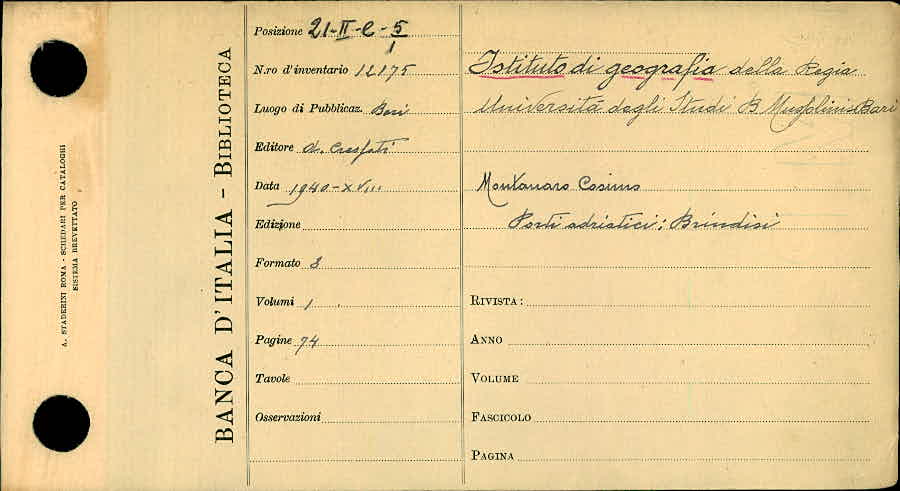 A. STADERINI ROMA - SCHEDARI PER CATALOGHI
SISTEMA BREVETTATO
BANCA D'ITALIA - BIBLIOTECA
Posizione 21-II-C-5
1
N.ro d'inventario 12175
Luogo di Pubblicaz. Bari
Editore A. Cressati
Data 1940-XVIII
Edizione
Formato 8
Volumi 1
Pagine 74
Tavole
Osservazioni
Istituto di geografia della Regia
Università degli Studi B Mussolini Bari
Montanaro Cosimo
Porti adriatici: Brindisi
RIVISTA:
ANNO
VOLUME
FASCICOLO
PAGINA